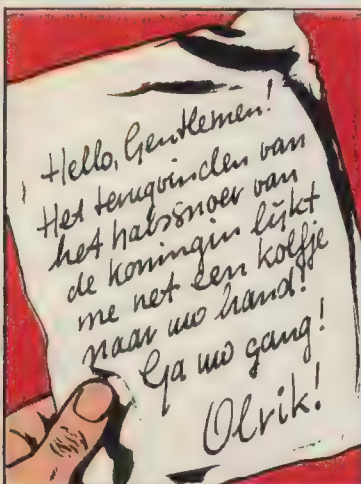 Hello, Gentlemen!
Het terugvinden van
het halssnoer van
de koningin lijkt
me net een kolfje
naar uw hand!
Ga uw gang!
Olrik!